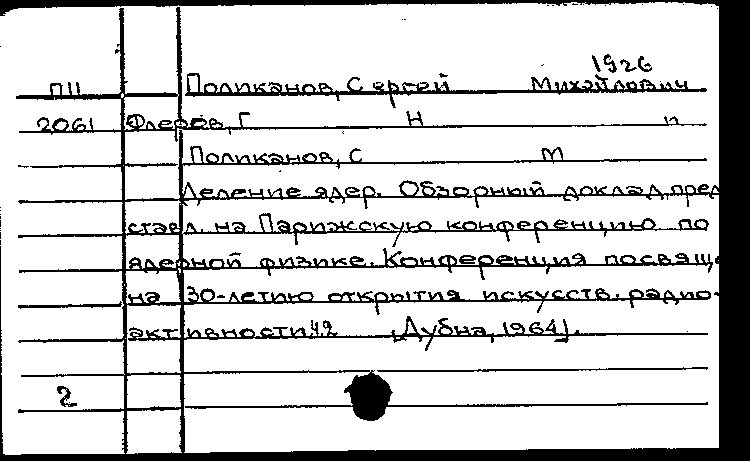 1926
П11 Поликанов, Сергей Михайлович
2061 Флеров, Г Н п
Поликанов, С М
Деление ядер. Обзорный доклад, пред
ставл. на Парижскую конференцию по
ядерной физике. Конференция посвяще
на 30-летию открытия искусств. радио-
активности
[Дубна, 1964].
2